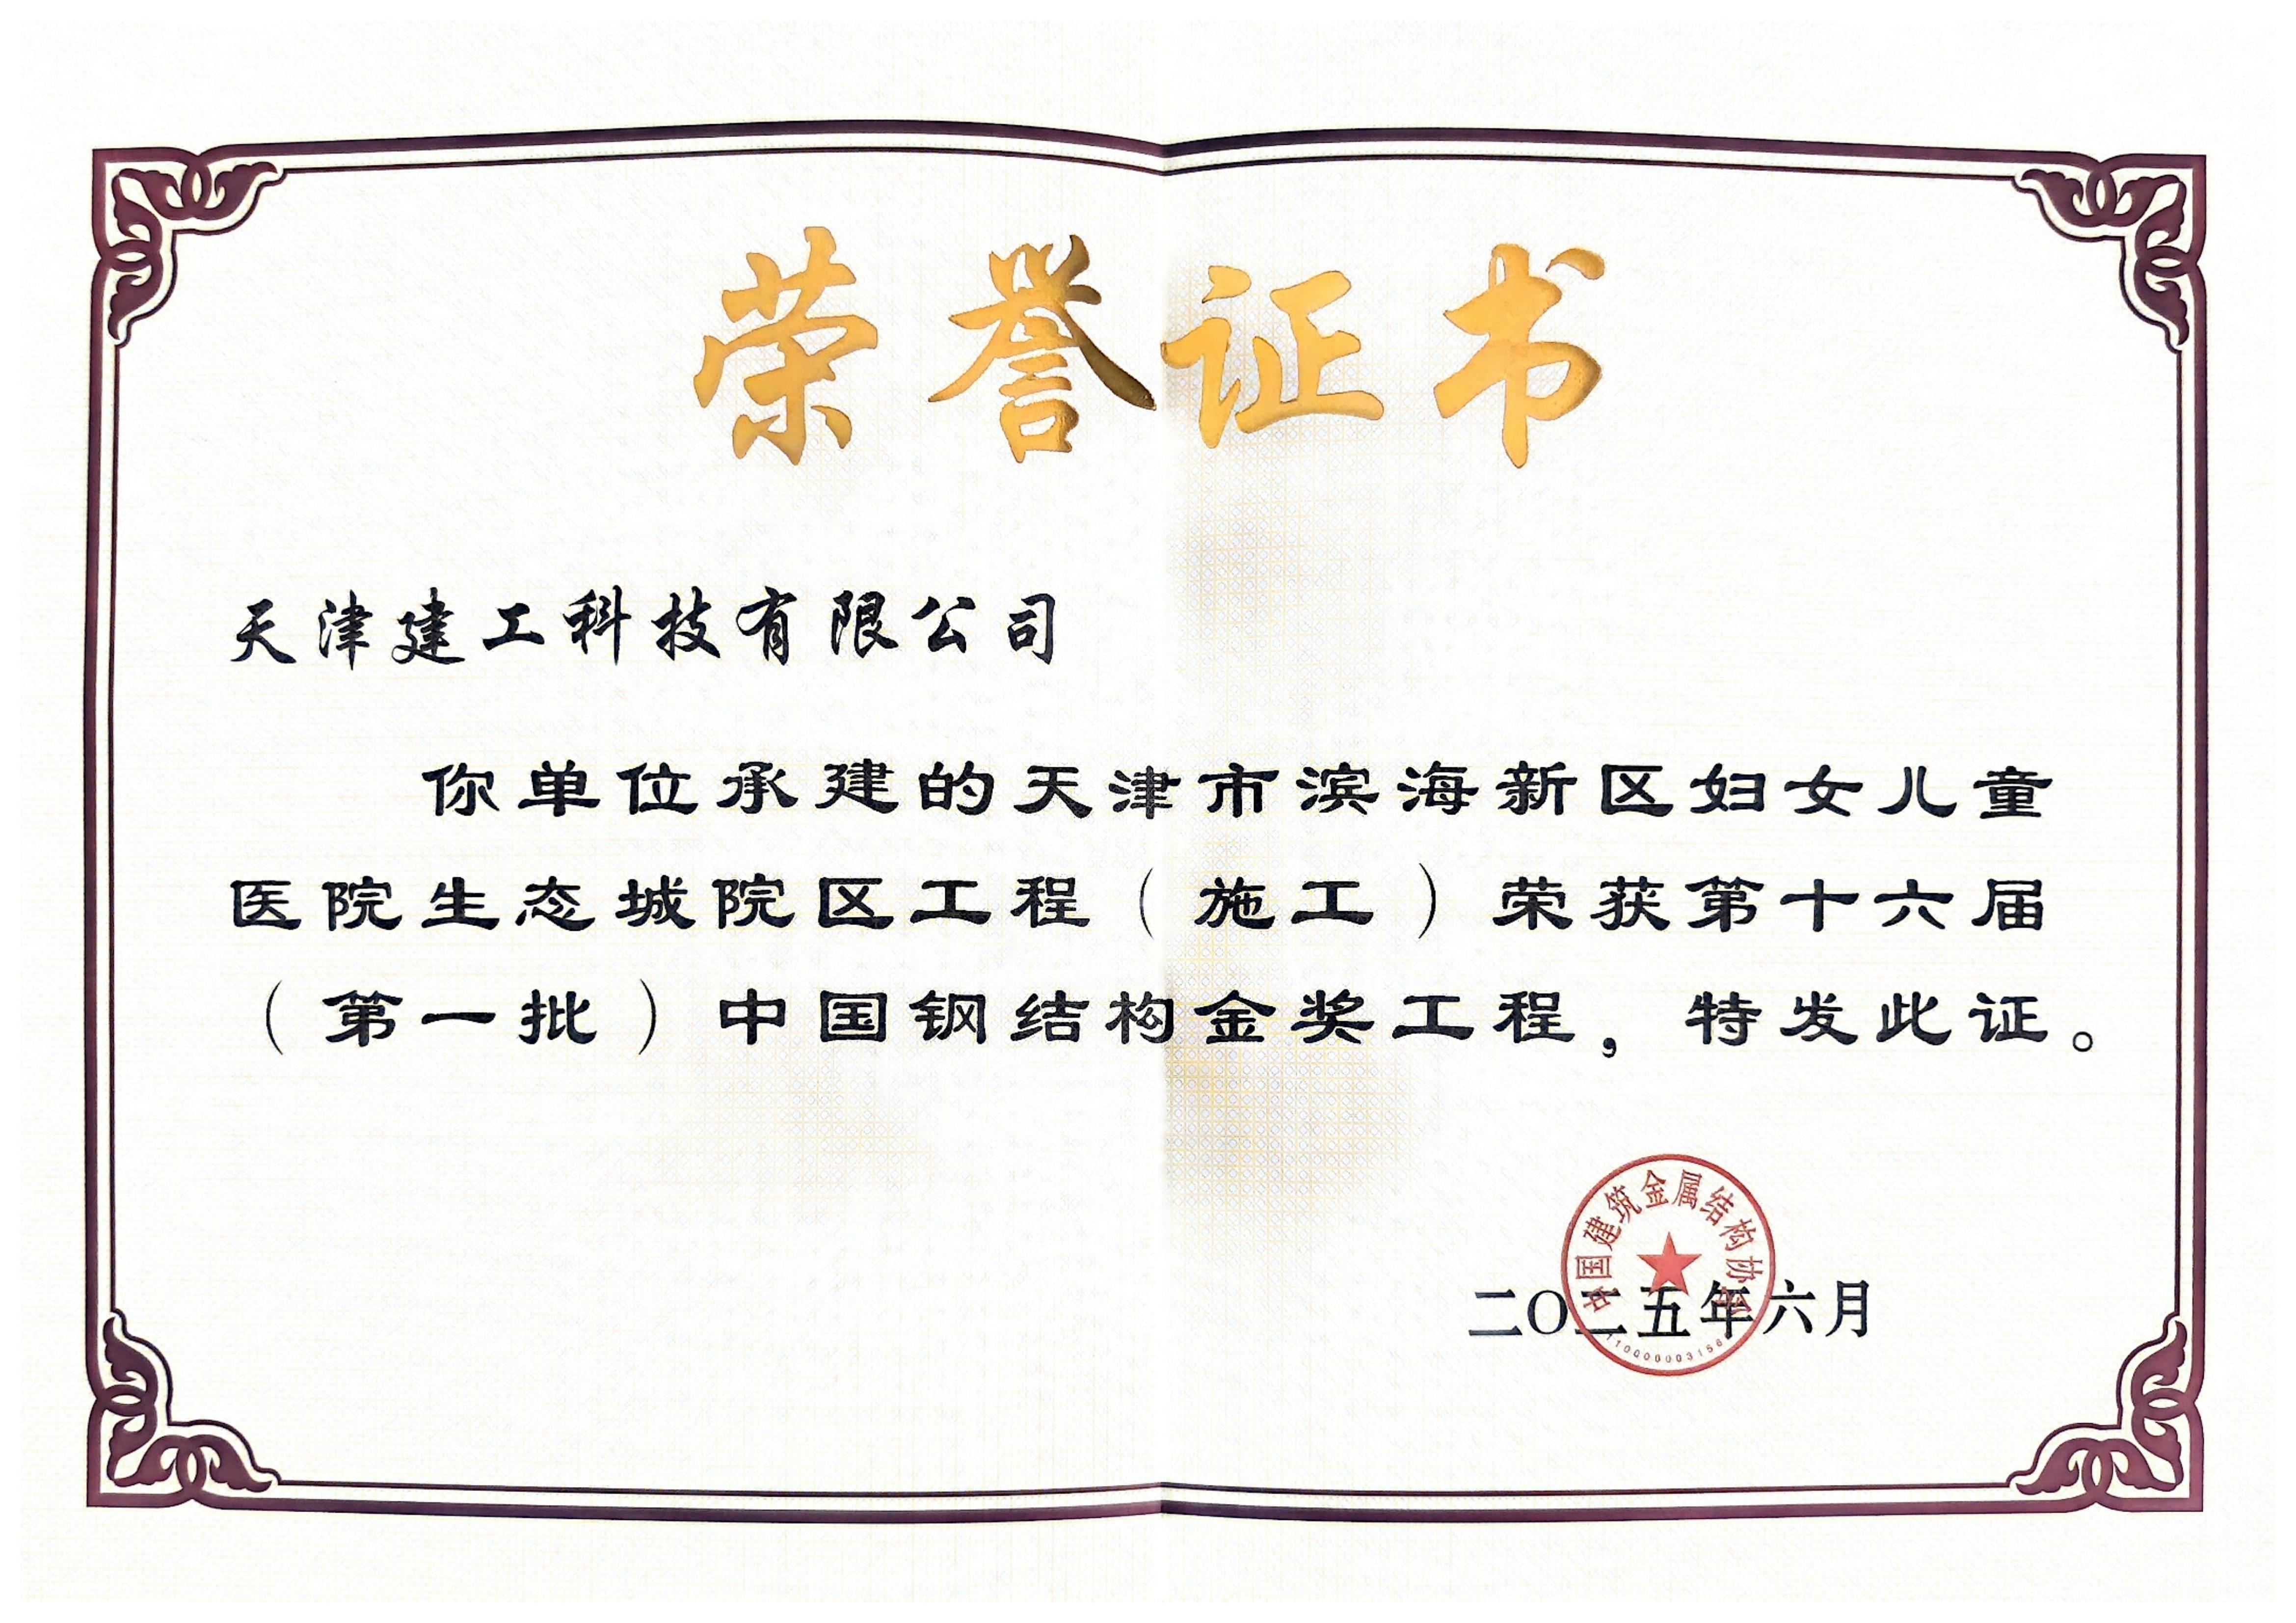 荣誉证书
天津建工科技有限公司
你单位承建的天津市滨海新区妇女儿童
医院生态城院区工程（施工）荣获第十六届
（第一批）中国钢结构金奖工程，特发此证。
中国建筑金属结构协会
二〇二五年六月